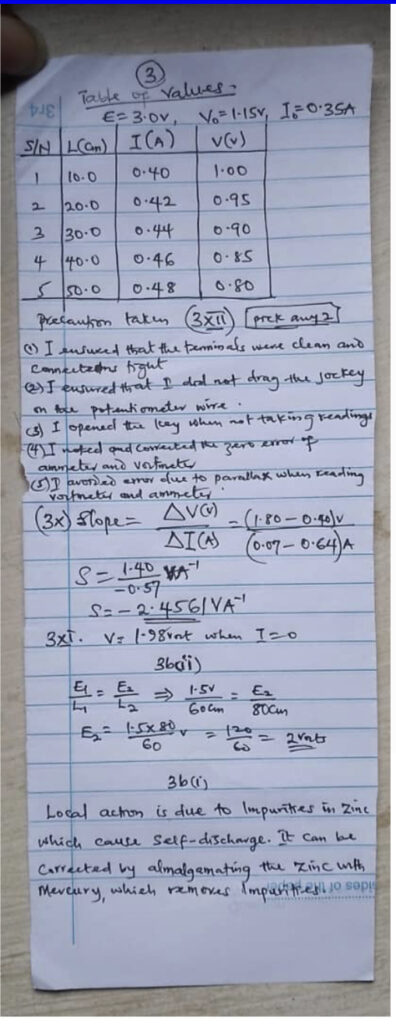 3
Table of values.
E=3.0V, V₀=1.15V, I₀=0.35A
S/N L(cm) I(A) V(v)
1 10.0 0.40 1.00
2 20.0 0.42 0.95
3 30.0 0.44 0.90
4 40.0 0.46 0.85
5 50.0 0.48 0.80
Precaution taken (3xii) [pick any 2]
(1) I ensured that the terminals were clean and
connections tight
(2) I ensured that I did not drag the jockey
on the potentiometer wire.
(3) I opened the key when not taking readings
(4) I noted and corrected the zero error of
ammeter and voltmeter
(5) I avoided error due to parallax when reading
voltmeter and ammeter.
(3x) Slope = ΔV(v)/ΔI(A) = (1.80 - 0.40)V/(0.07 - 0.64)A
S = 1.40/-0.57 VA⁻¹
S = -2.4561VA⁻¹
3xI. V = 1.98volt when I=0
3b(ii)
E₁/L₁ = E₂/L₂ ⇒ 1.5V/60cm = E₂/80cm
E₂ = 1.5x80/60 v = 120/60 = 2volts
3b(i)
Local action is due to Impurities in zinc
which cause self-discharge. It can be
corrected by almalgamating the zinc with
Mercury, which removes impurities.